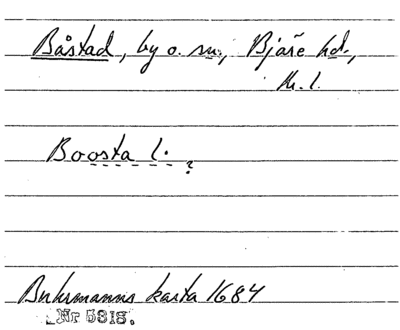 Båstad, by o. sn., Bjäre hd.,
Kr. l.
Boosta l. ?
Buhrmanns karta 1684
Nr 5818.